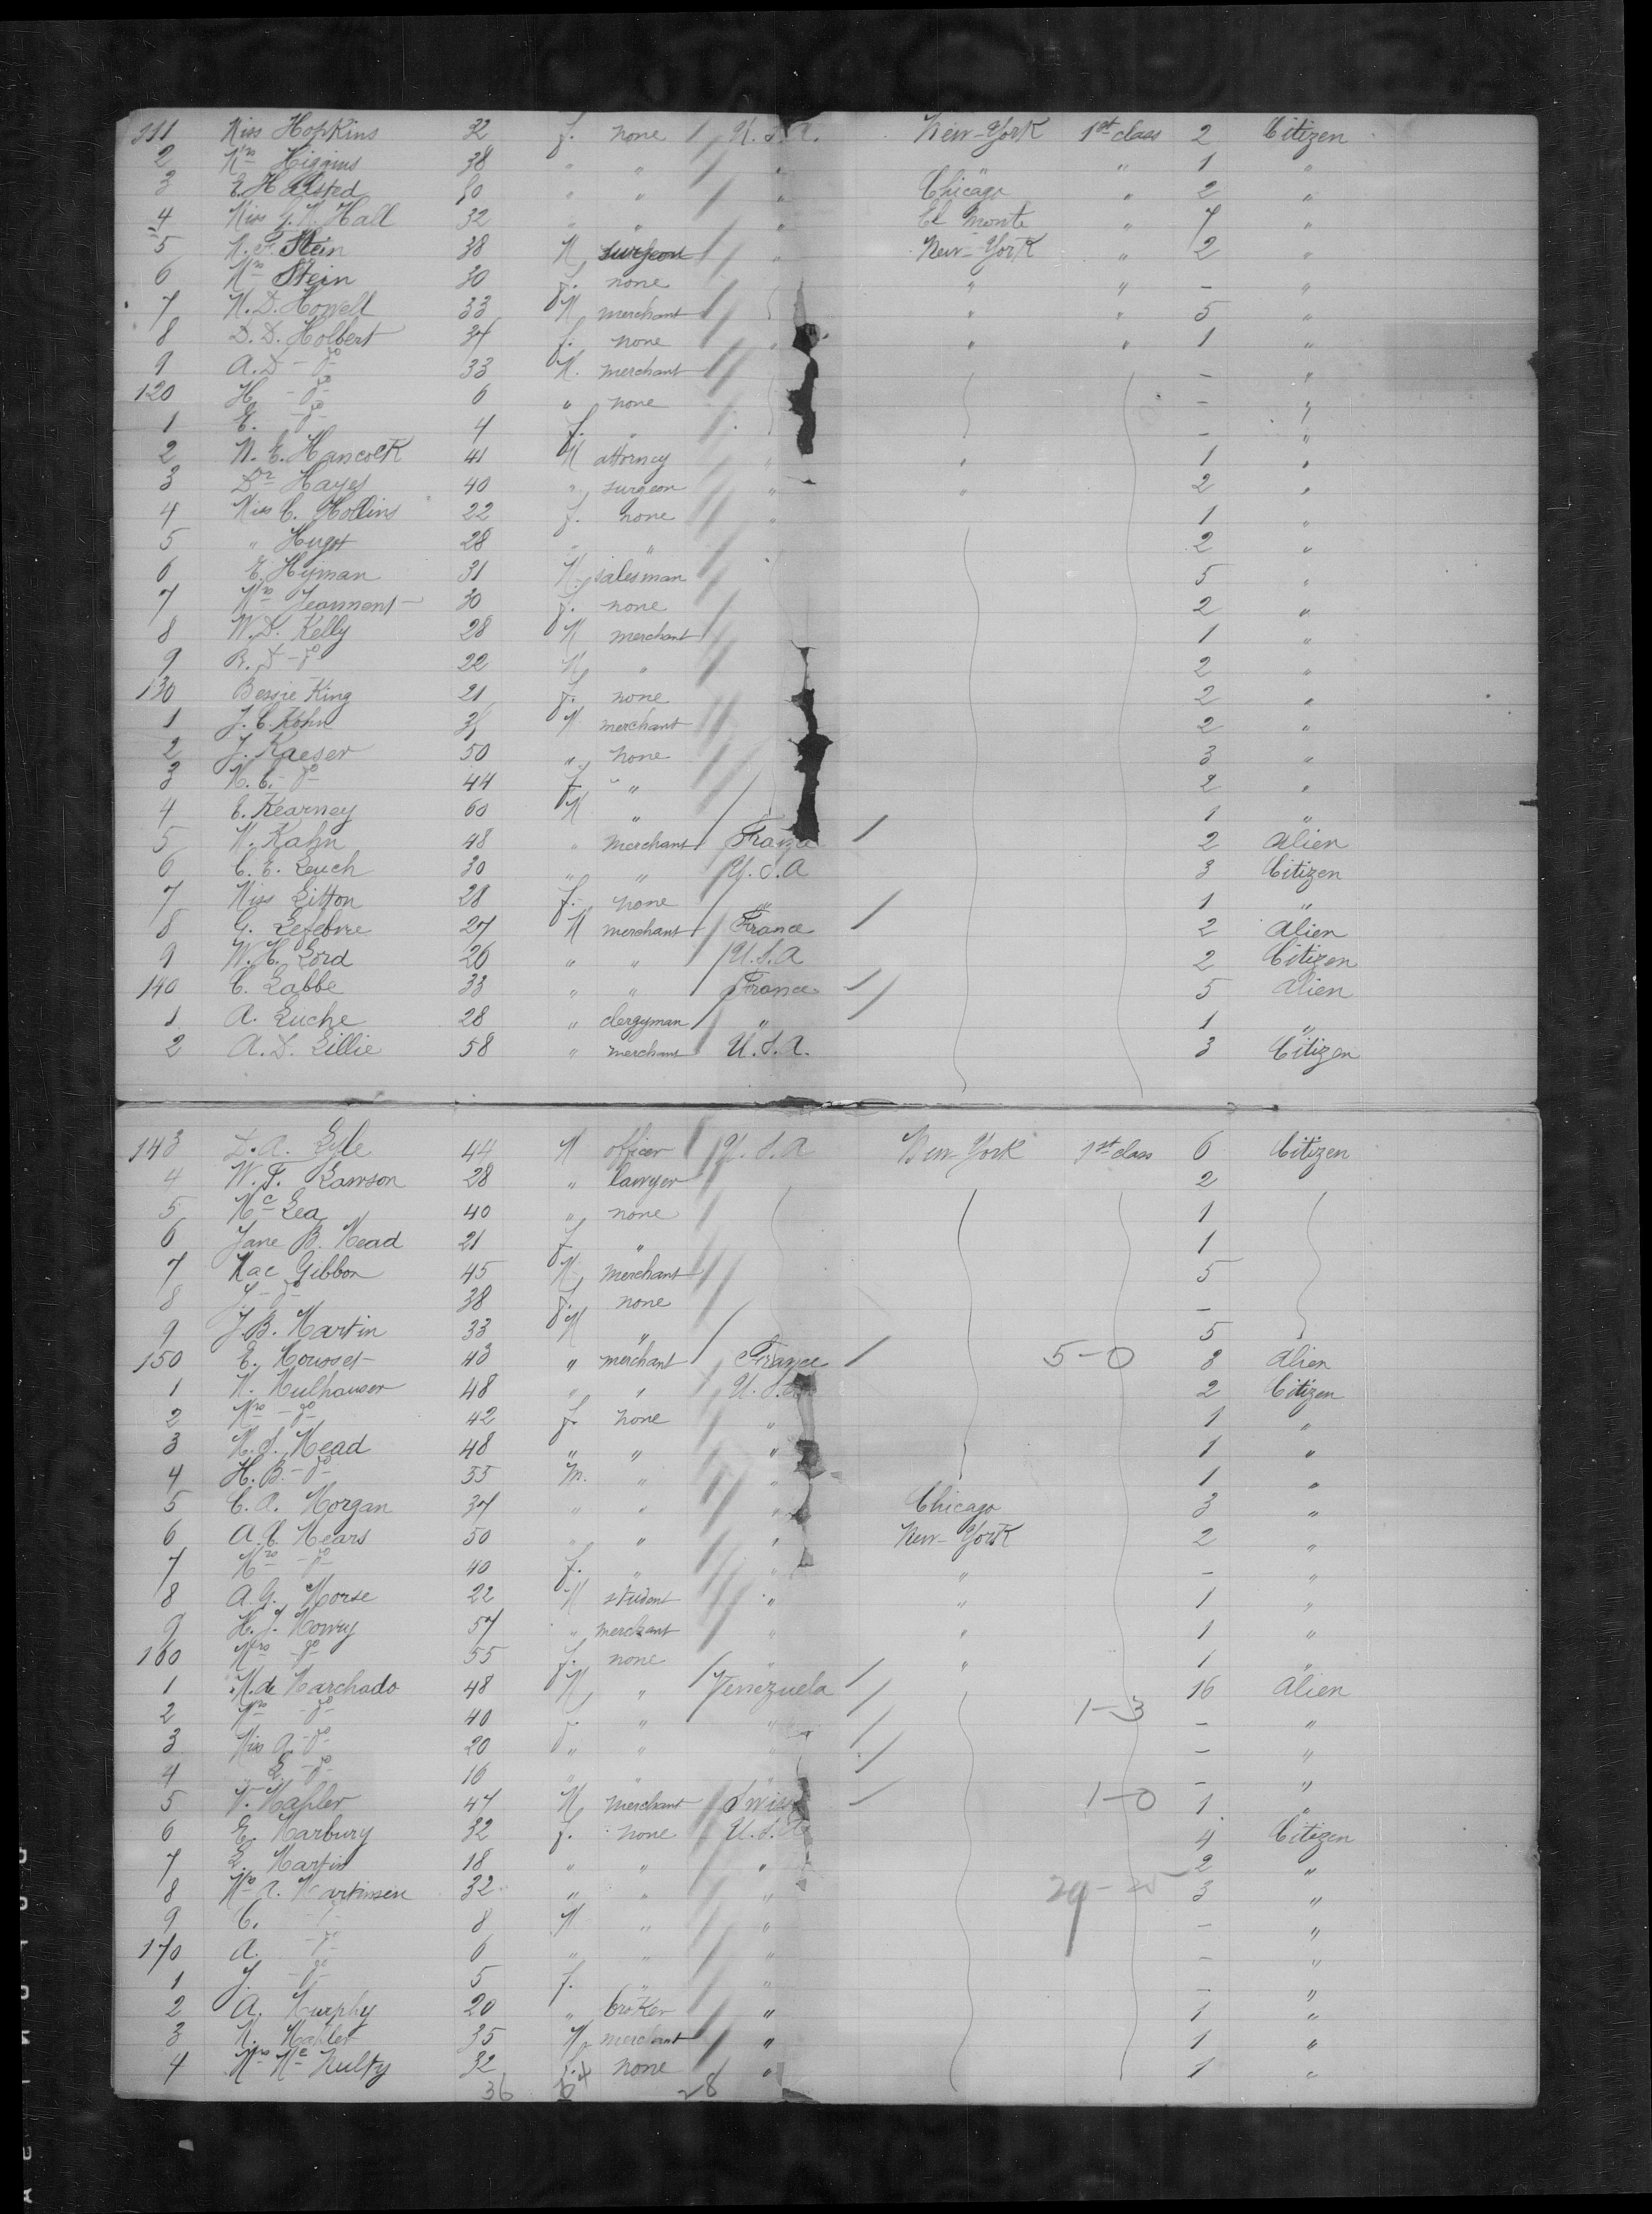 111 Miss Hopkins 32 f. none U.S.A. New-York 1st class 2 Citizen
2 Mrs Higgins 38 " " " " " 1 "
3 E. Halsted 50 " " " Chicago " 2 "
4 Miss G. M. Hall 32 " " " El Monte " 7 "
5 M. F. Stein 38 M surgeon " New-York " 2 "
6 Mrs Stein 30 f. none " " - "
7 M. D. Howell 33 M merchant " " 5 "
8 D. D. Holbert 34 f. none " " " 1 "
9 A. D - do - 33 M. merchant - "
120 H. - do - 6 " none - "
1 E. - do - 4 f. " - "
2 N. E. Hancock 41 M attorney " " 1 "
3 Dr Hayes 40 " surgeon " " 2 "
4 Miss C. Hollins 22 f. none " 1 "
5 " Hugot 28 " " 2 "
6 E. Hyman 31 M. salesman 5 "
7 Mrs Jeanment 30 f. none 2 "
8 W. D. Kelly 28 M merchant 1 "
9 R. D - do 22 M " 2 "
130 Bessie King 21 f. none 2 "
1 J. C. Kohn M merchant 2 "
2 J. Kaeser 50 " none 3 "
3 M. C. - do - 44 f. " 2 "
4 C. Kearney 60 M " 1 "
5 M. Kahn 48 " merchant France 2 Alien
6 C. E. Leuch 30 " " U.S.A 3 Citizen
7 Miss Litton 28 f. none " 1 "
8 G. Lefebvre 27 M merchant France 2 Alien
9 W. H. Lord 26 " " U.S.A 2 Citizen
140 C. Labbe 33 " " France 5 Alien
1 A. Luche 28 " clergyman " 1 "
2 A. D. Lillie 58 " merchant U.S.A. 3 Citizen
143 D. A. Lyle 44 M officer U.S.A New-York 1st class 6 Citizen
4 W. F. Lawson 28 " lawyer 2
5 Mc Lea 40 " none 1
6 Jane B. Mead 21 f. " 1
7 Mac Gibbon 45 M merchant 5
8 J. - do - 38 f. none -
9 J. B. Martin 33 M " 5
150 E. Mousset 43 " merchant France 5-0 8 Alien
1 M. Mulhauser 48 " " U.S.A 2 Citizen
2 Mrs - do - 42 f. none " 1 "
3 M. S. Mead 48 " " " 1 "
4 H. B. - do - 55 m. " " 1 "
5 C. A. Morgan 37 " " " Chicago 3 "
6 A. C. Mears 50 " " " New-York 2 "
7 Mrs - do - 40 f. " " " - "
8 A. G. Morse 22 M student " " 1 "
9 H. J. Mowry 57 " merchant " " 1 "
160 Mrs - do 55 f. none " " 1 "
1 M. de Marchado 48 M " Venezuela 16 Alien
2 Mrs - do - 40 f. " " 1-3 - "
3 Miss A. - do - 20 " " " - "
4 " L. - do - 16 " " " - "
5 V. Mahler 47 M merchant Swiss 1-0 1 "
6 E. Marbury 32 f. none U.S.A 4 Citizen
7 L. Martin 18 " " " 2 "
8 Mrs A. Martinsen 32 " " " 3 "
9 C. - do - 8 M " " - "
170 A. - do - 6 " " " - "
1 J. - do - 5 f. " " - "
2 A. Murphy 20 " broker " 1 "
3 M. Mahler 35 M merchant " 1 "
4 Mrs Mc Nulty 32 f. none " 1 "
36 28